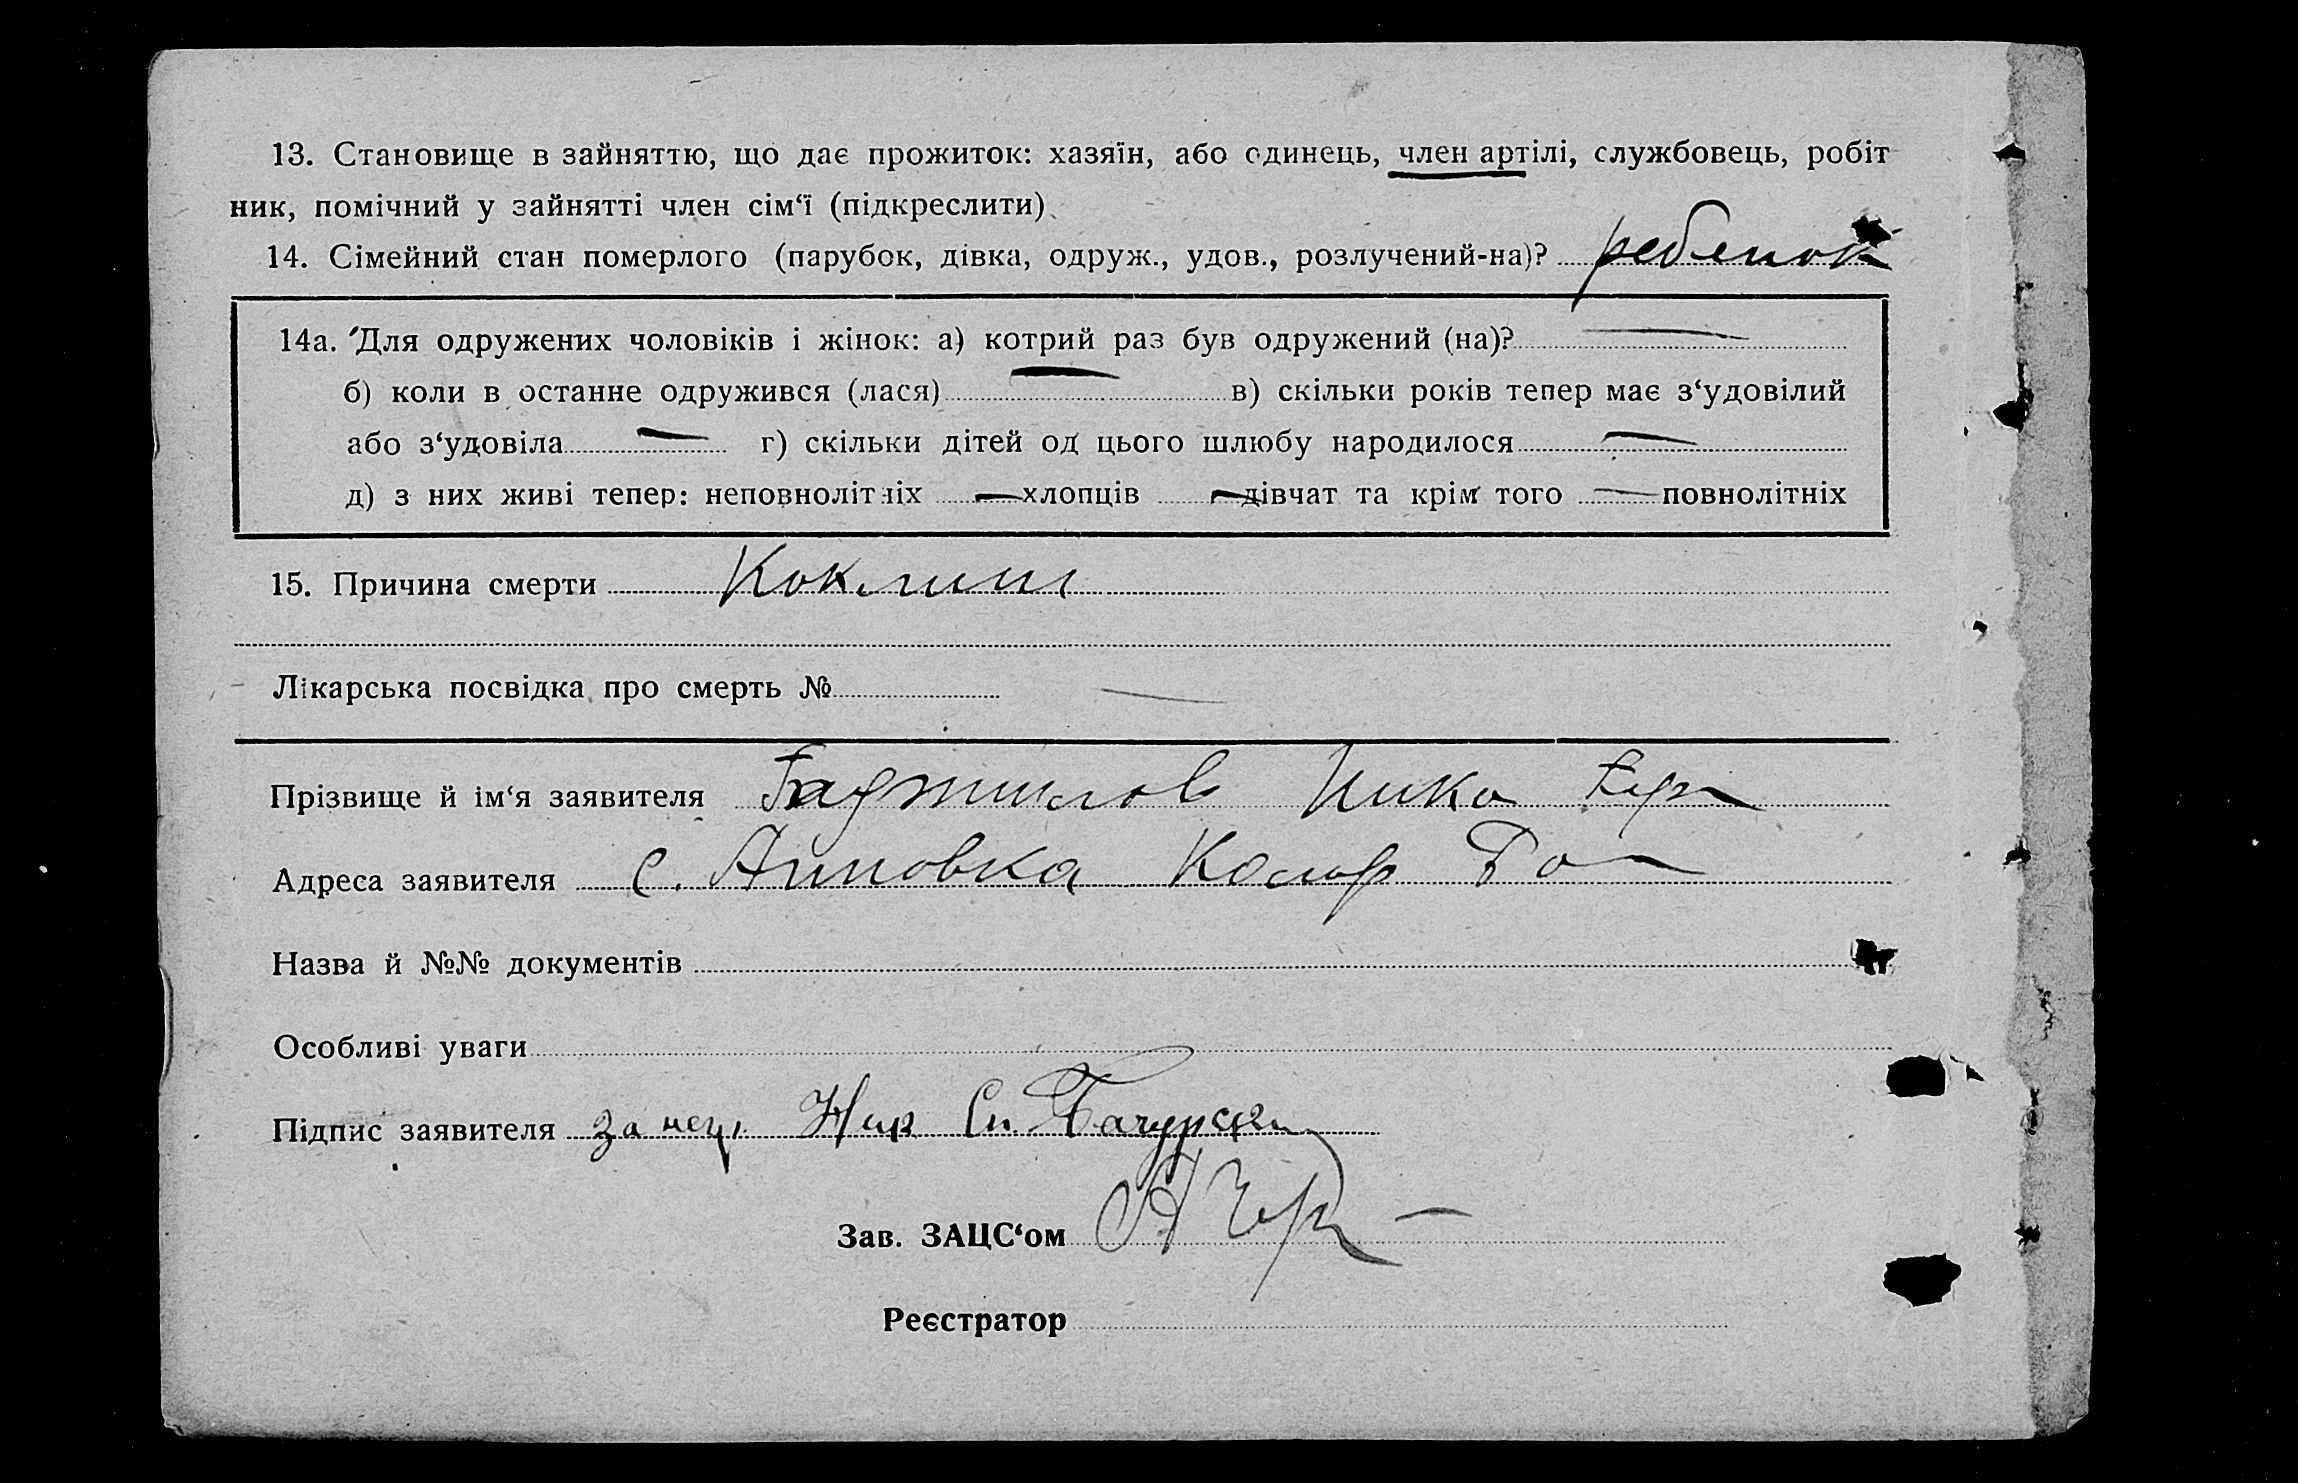 13. Становище в зайняттю, що дає прожиток: хазяїн, або одинець, член артілі, службовець, робіт
ник, помічний у зайнятті член сім‘ї (підкреслити)
14. Сімейний стан померлого (парубок, дівка, одруж., удов., розлучений-на)? ребенок
14а. Для одружених чоловіків і жінок: а) котрий раз був одружений (на)? —
б) коли в останне одружився (лася) — в) скільки років тепер має з‘удовілий
або з‘удовіла — г) скільки дітей од цього шлюбу народилося —
д) з них живі тепер: неповнолітніх — хлопців — дівчат та крім того — повнолітніх
15. Причина смерти Коклиш
Лікарська посвідка про смерть № —
Прізвище й ім‘я заявителя
Адреса заявителя с. Анновка
Назва й №№ документів
Особливі уваги
Підпис заявителя за
Зав. ЗАЦС‘ом
Реєстратор